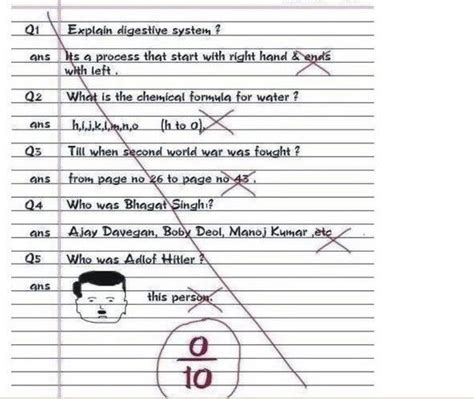 Q1 Explain digestive system ?
ans Its a process that start with right hand & ends
with left .
Q2 What is the chemical formula for water ?
ans h,i,j,k,l,m,n,o (h to o).
Q3 Till when second world war was fought ?
ans from page no 26 to page no 43 .
Q4 Who was Bhagat Singh ?
ans Ajay Davegan, Boby Deol, Manoj Kumar ,etc
Q5 Who was Adlof Hitler ?
ans this person.
0
10